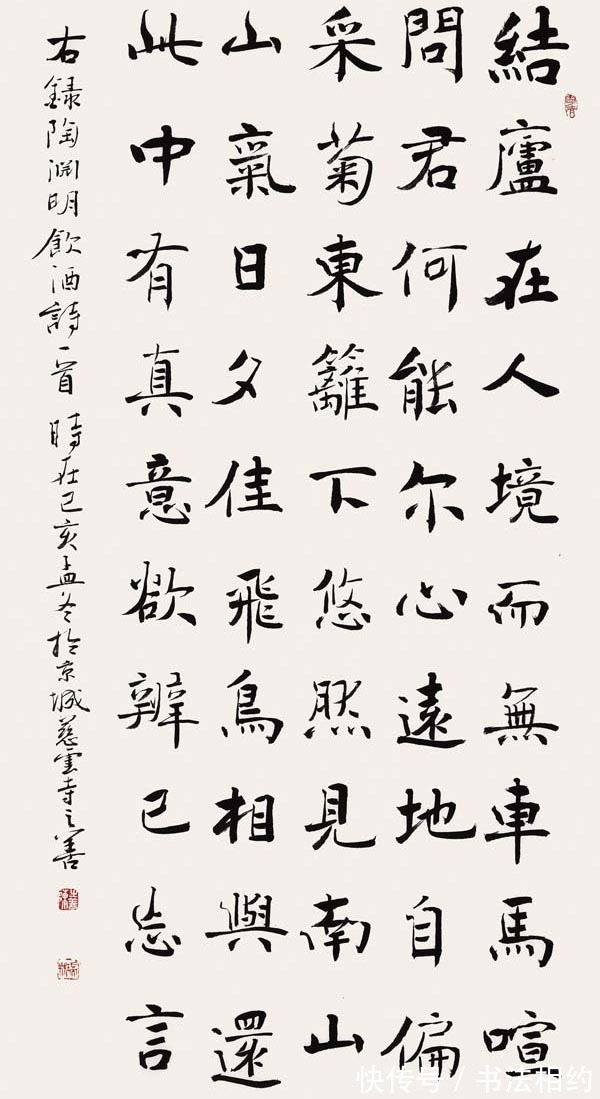 結廬在人境而無車馬喧
問君何能尔心遠地自偏
采菊東籬下悠然見南山
山氣日夕佳飛鳥相與還
此中有真意欲辨已忘言
右録陶淵明飲酒詩一首 時在己亥孟冬於京城慈雲寺之善
快传号/书法相约